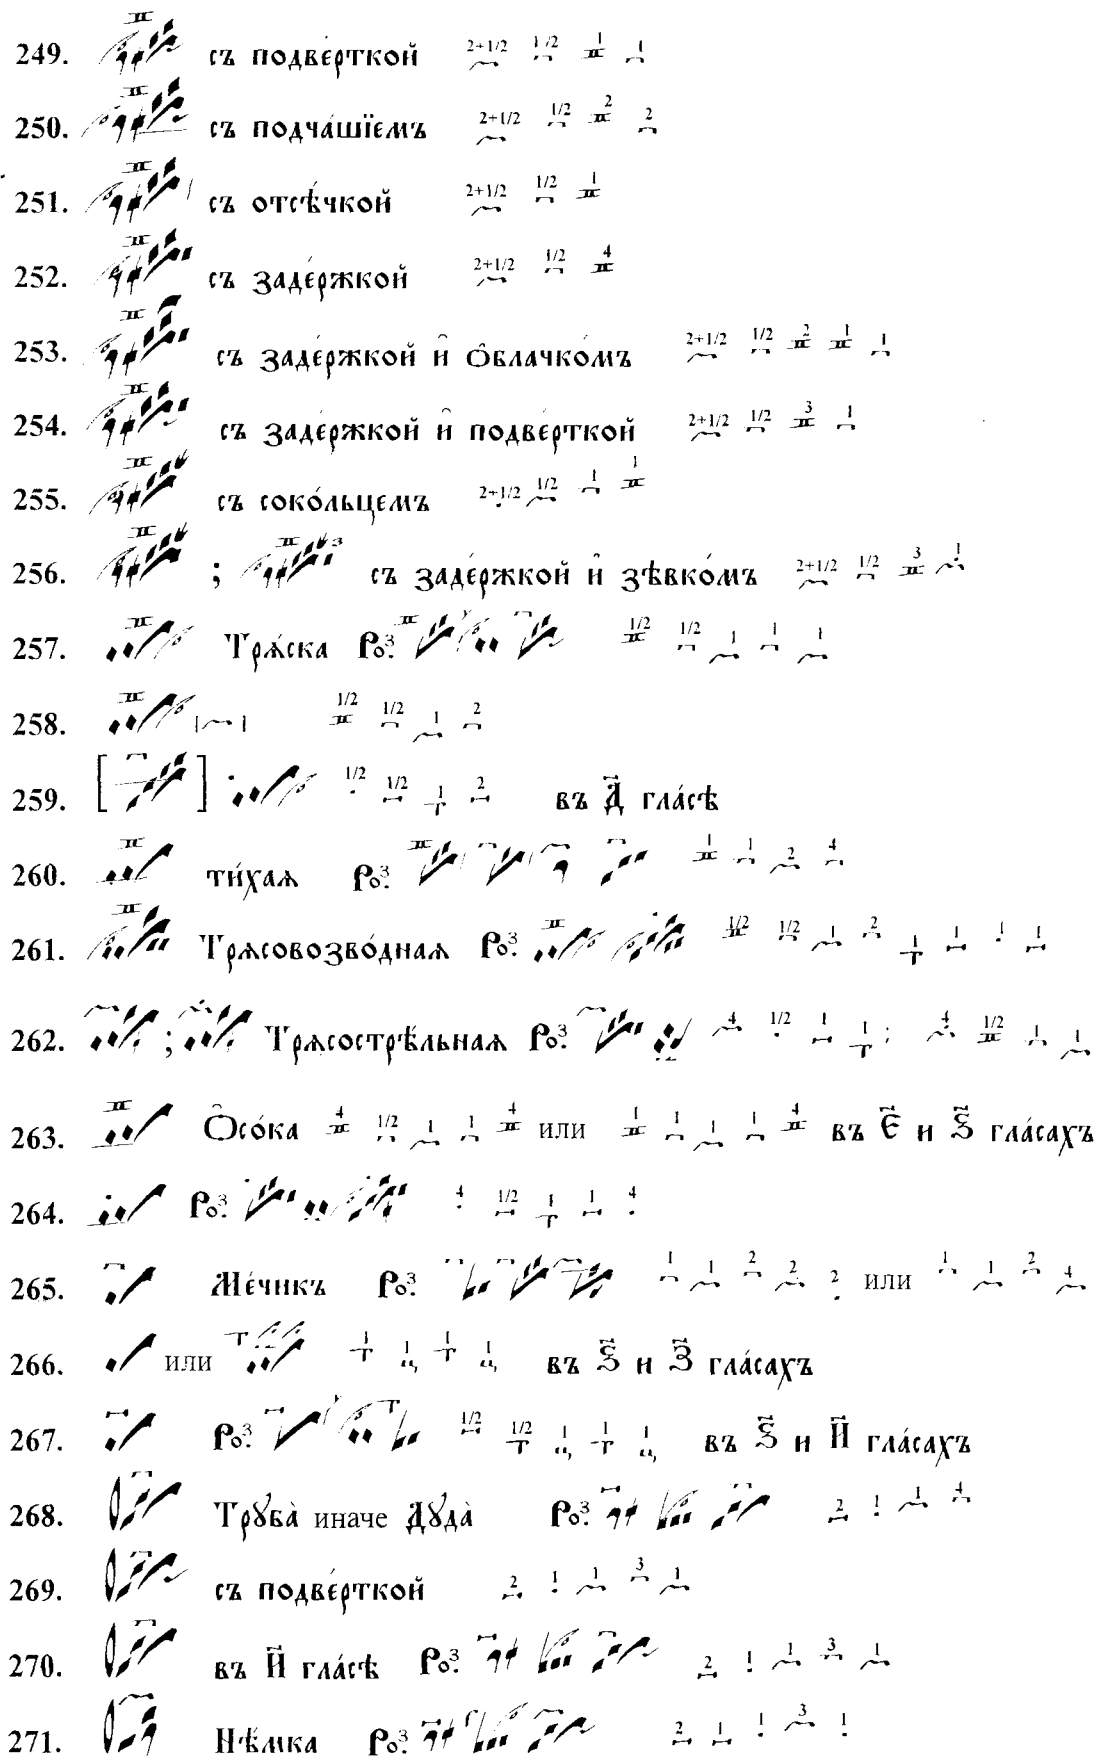 249. съ подве́рткой 2+1/2 1/2 1 1
250. съ подча́шїемъ 2+1/2 1/2 2 2
251. съ отсѣ́чкой 2+1/2 1/2 1
252. съ заде́ржкой 2+1/2 1/2 4
253. съ заде́ржкой и҆̑ О҆̑блачко́мъ 2+1/2 1/2 2 1 1
254. съ заде́ржкой и҆̑ подве́рткой 2+1/2 1/2 3 1
255. съ соко́льцемъ 2+1/2 1/2 1 1
256. ; съ заде́ржкой и҆̑ зѣвко́мъ 2+1/2 1/2 3 1
257. Трѧ́ска Роз: 1/2 1/2 1 1 1
258. 1/2 1/2 1 2
259. [ ] 1/2 1/2 1 2 въ Д҃ гла́сѣ
260. ти́хаѧ Роз: 1 1 2 4
261. Трѧсовозво́днаѧ Роз: 1/2 1/2 1 2 1 1 1 1
262. ; Трѧсострѣ́льнаѧ Роз: 4 1/2 1 1 ; 4 1/2 1 1
263. О҆̑со́ка 4 1/2 1 1 4 или 1 1 1 1 4 въ Є҃ и Ѕ҃ гла́сахъ
264. Роз: 4 1/2 1 1 4
265. Ме́чикъ Роз: 1 1 2 2 2 или 1 1 2 4
266. или 1 1 1 1 въ Ѕ҃ и З҃ гла́сахъ
267. Роз: 1/2 1/2 1 1 1 въ Ѕ҃ и И҃ гла́сахъ
268. Трꙋба̀ иначе Дꙋда̀ Роз: 2 1 1 4
269. съ подве́рткой 2 1 1 3 1
270. въ И҃ гла́сѣ Роз: 2 1 1 3 1
271. Нѣ́мка Роз: 2 1 1 3 1